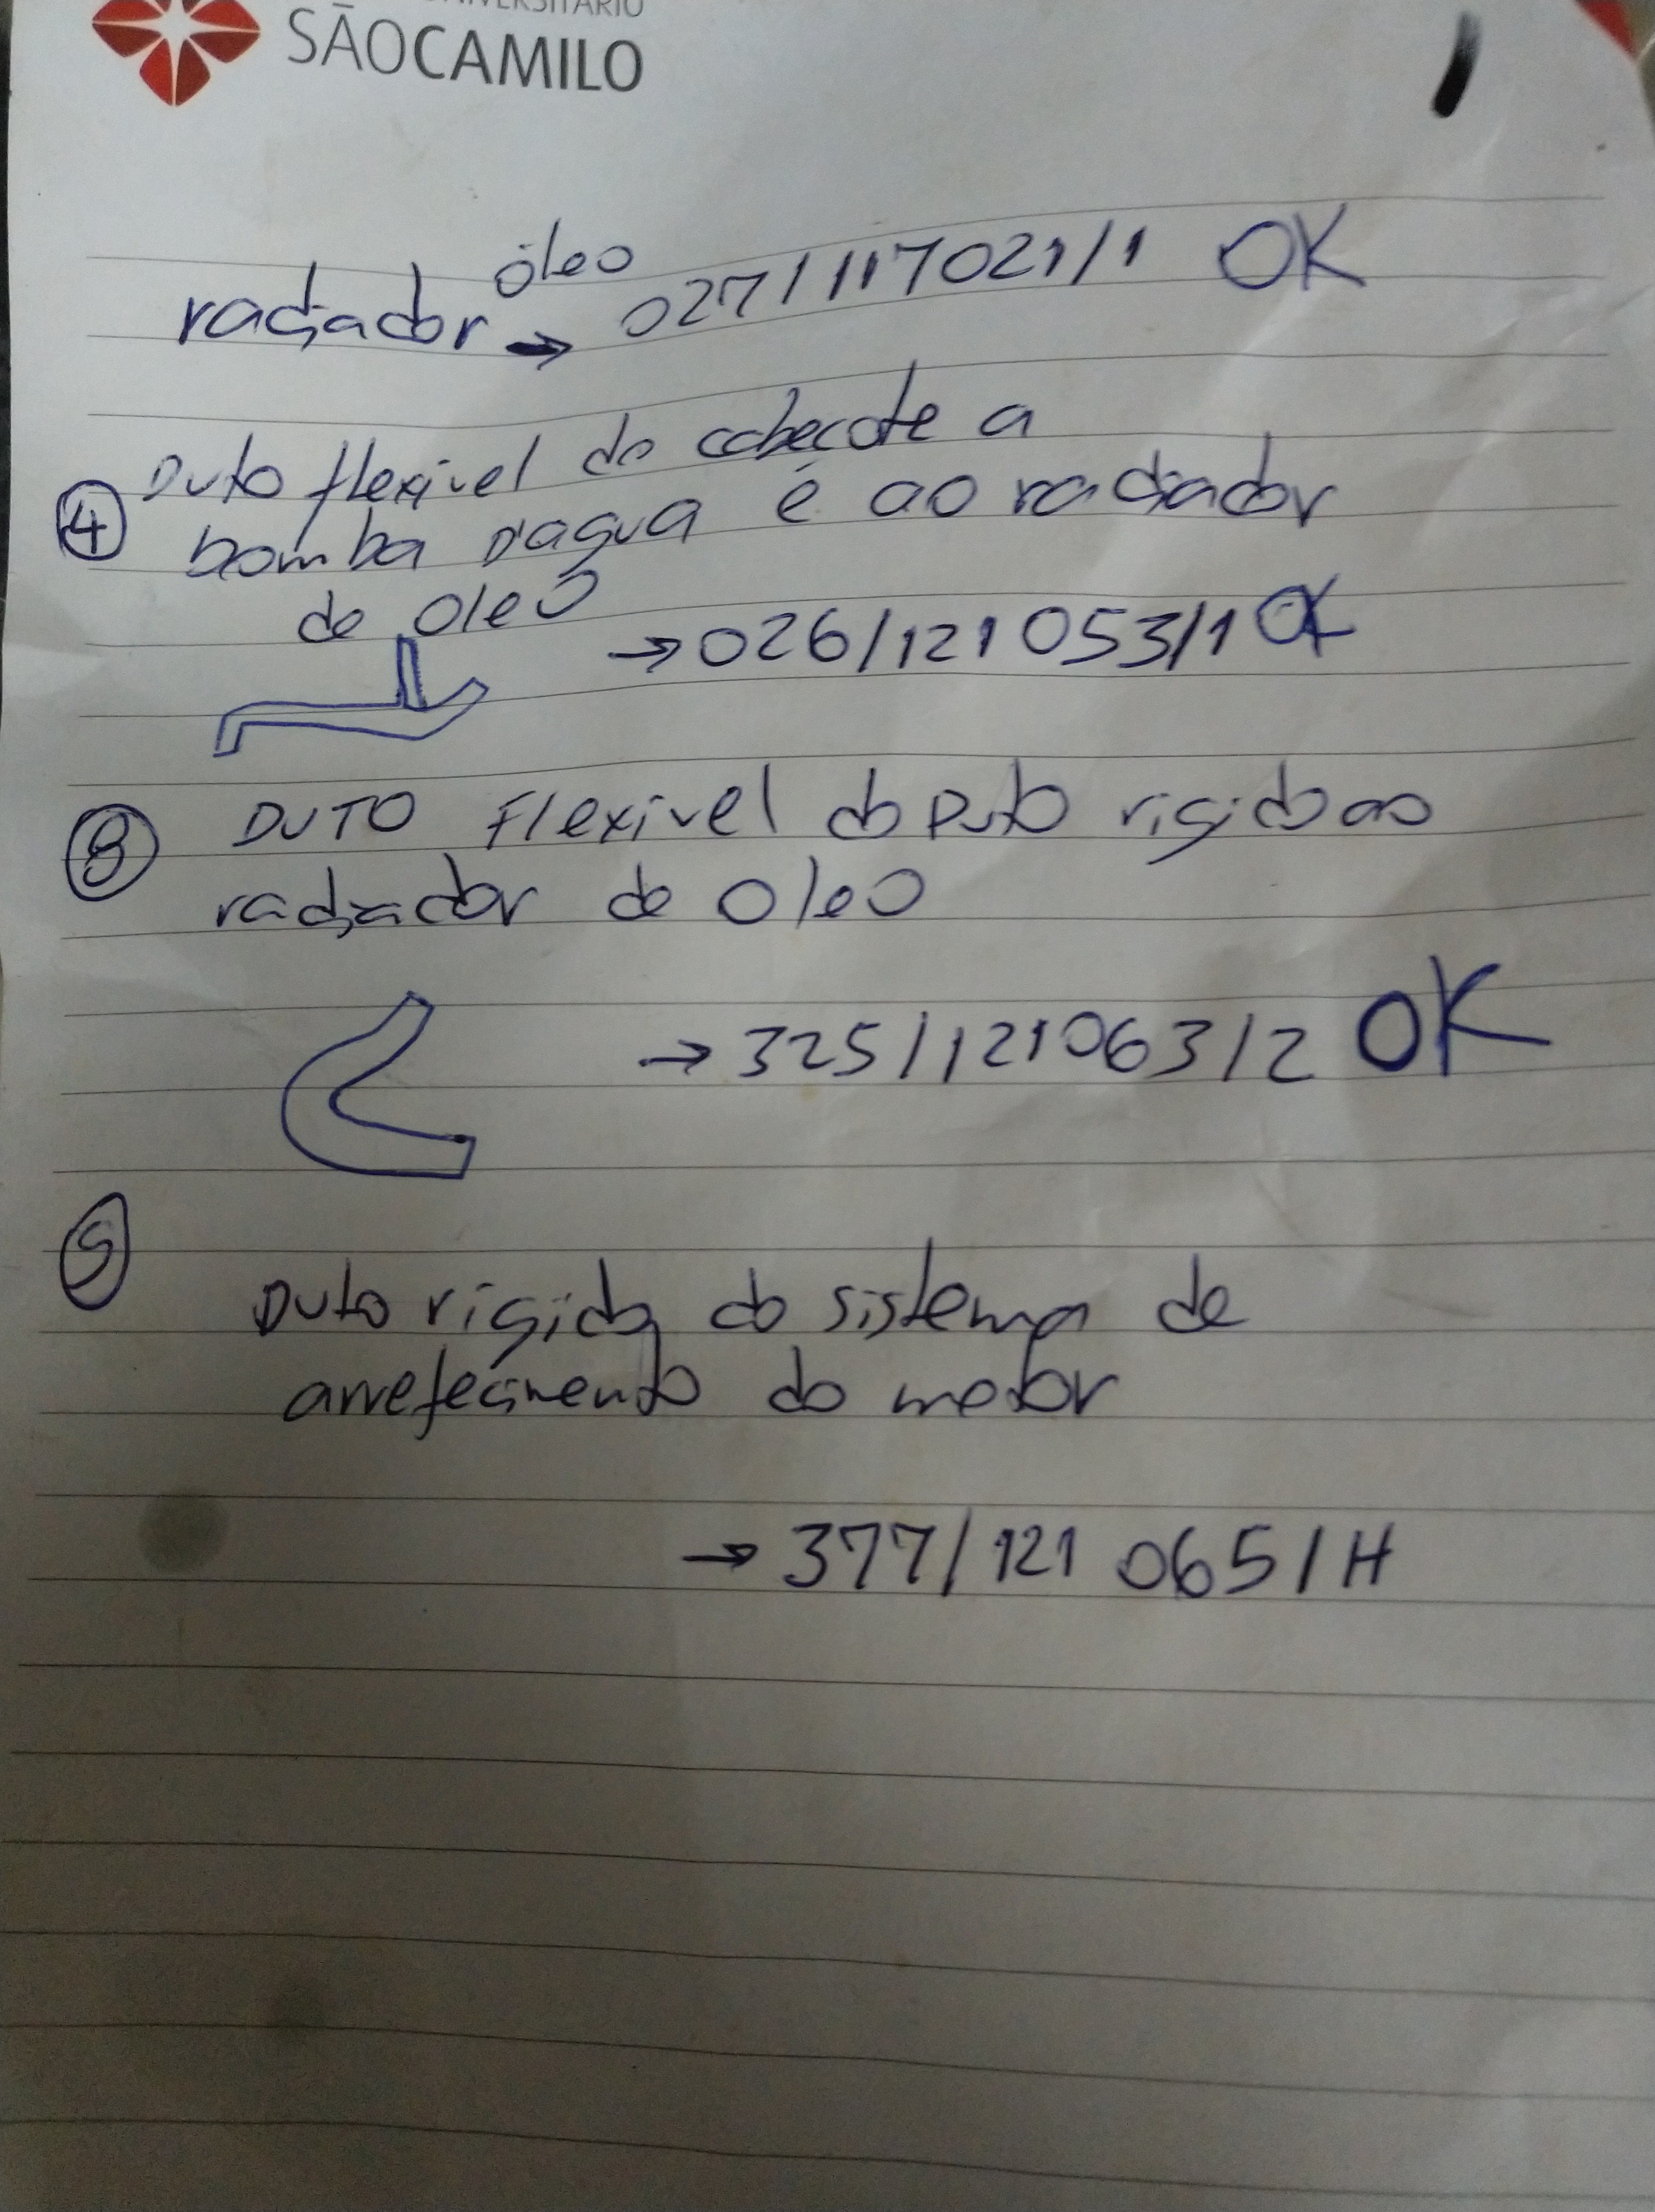 SÃOCAMILO
1
óleo
radiador → 027/117021/1 OK
Duto flexivel do cabeçote a
④ bomba D'agua e ao radiador
de oleo
→ 026/121 053/1 OK
⑧ DUTO Flexivel do Duto rigido ao
radiador de oleo
→ 325/121063/2 OK
⑤
Duto rigido do sistema de
arrefecimento do motor
→ 377/121 065/H